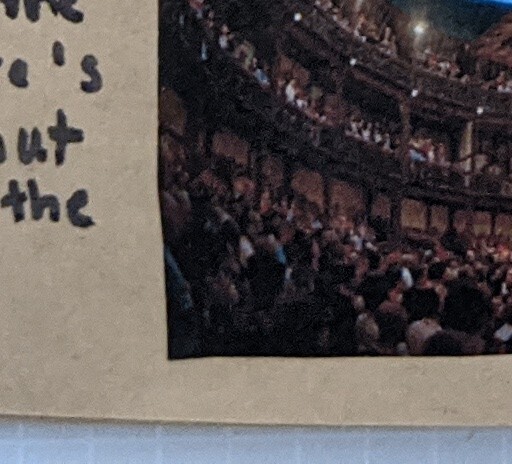 the
e's
out
the